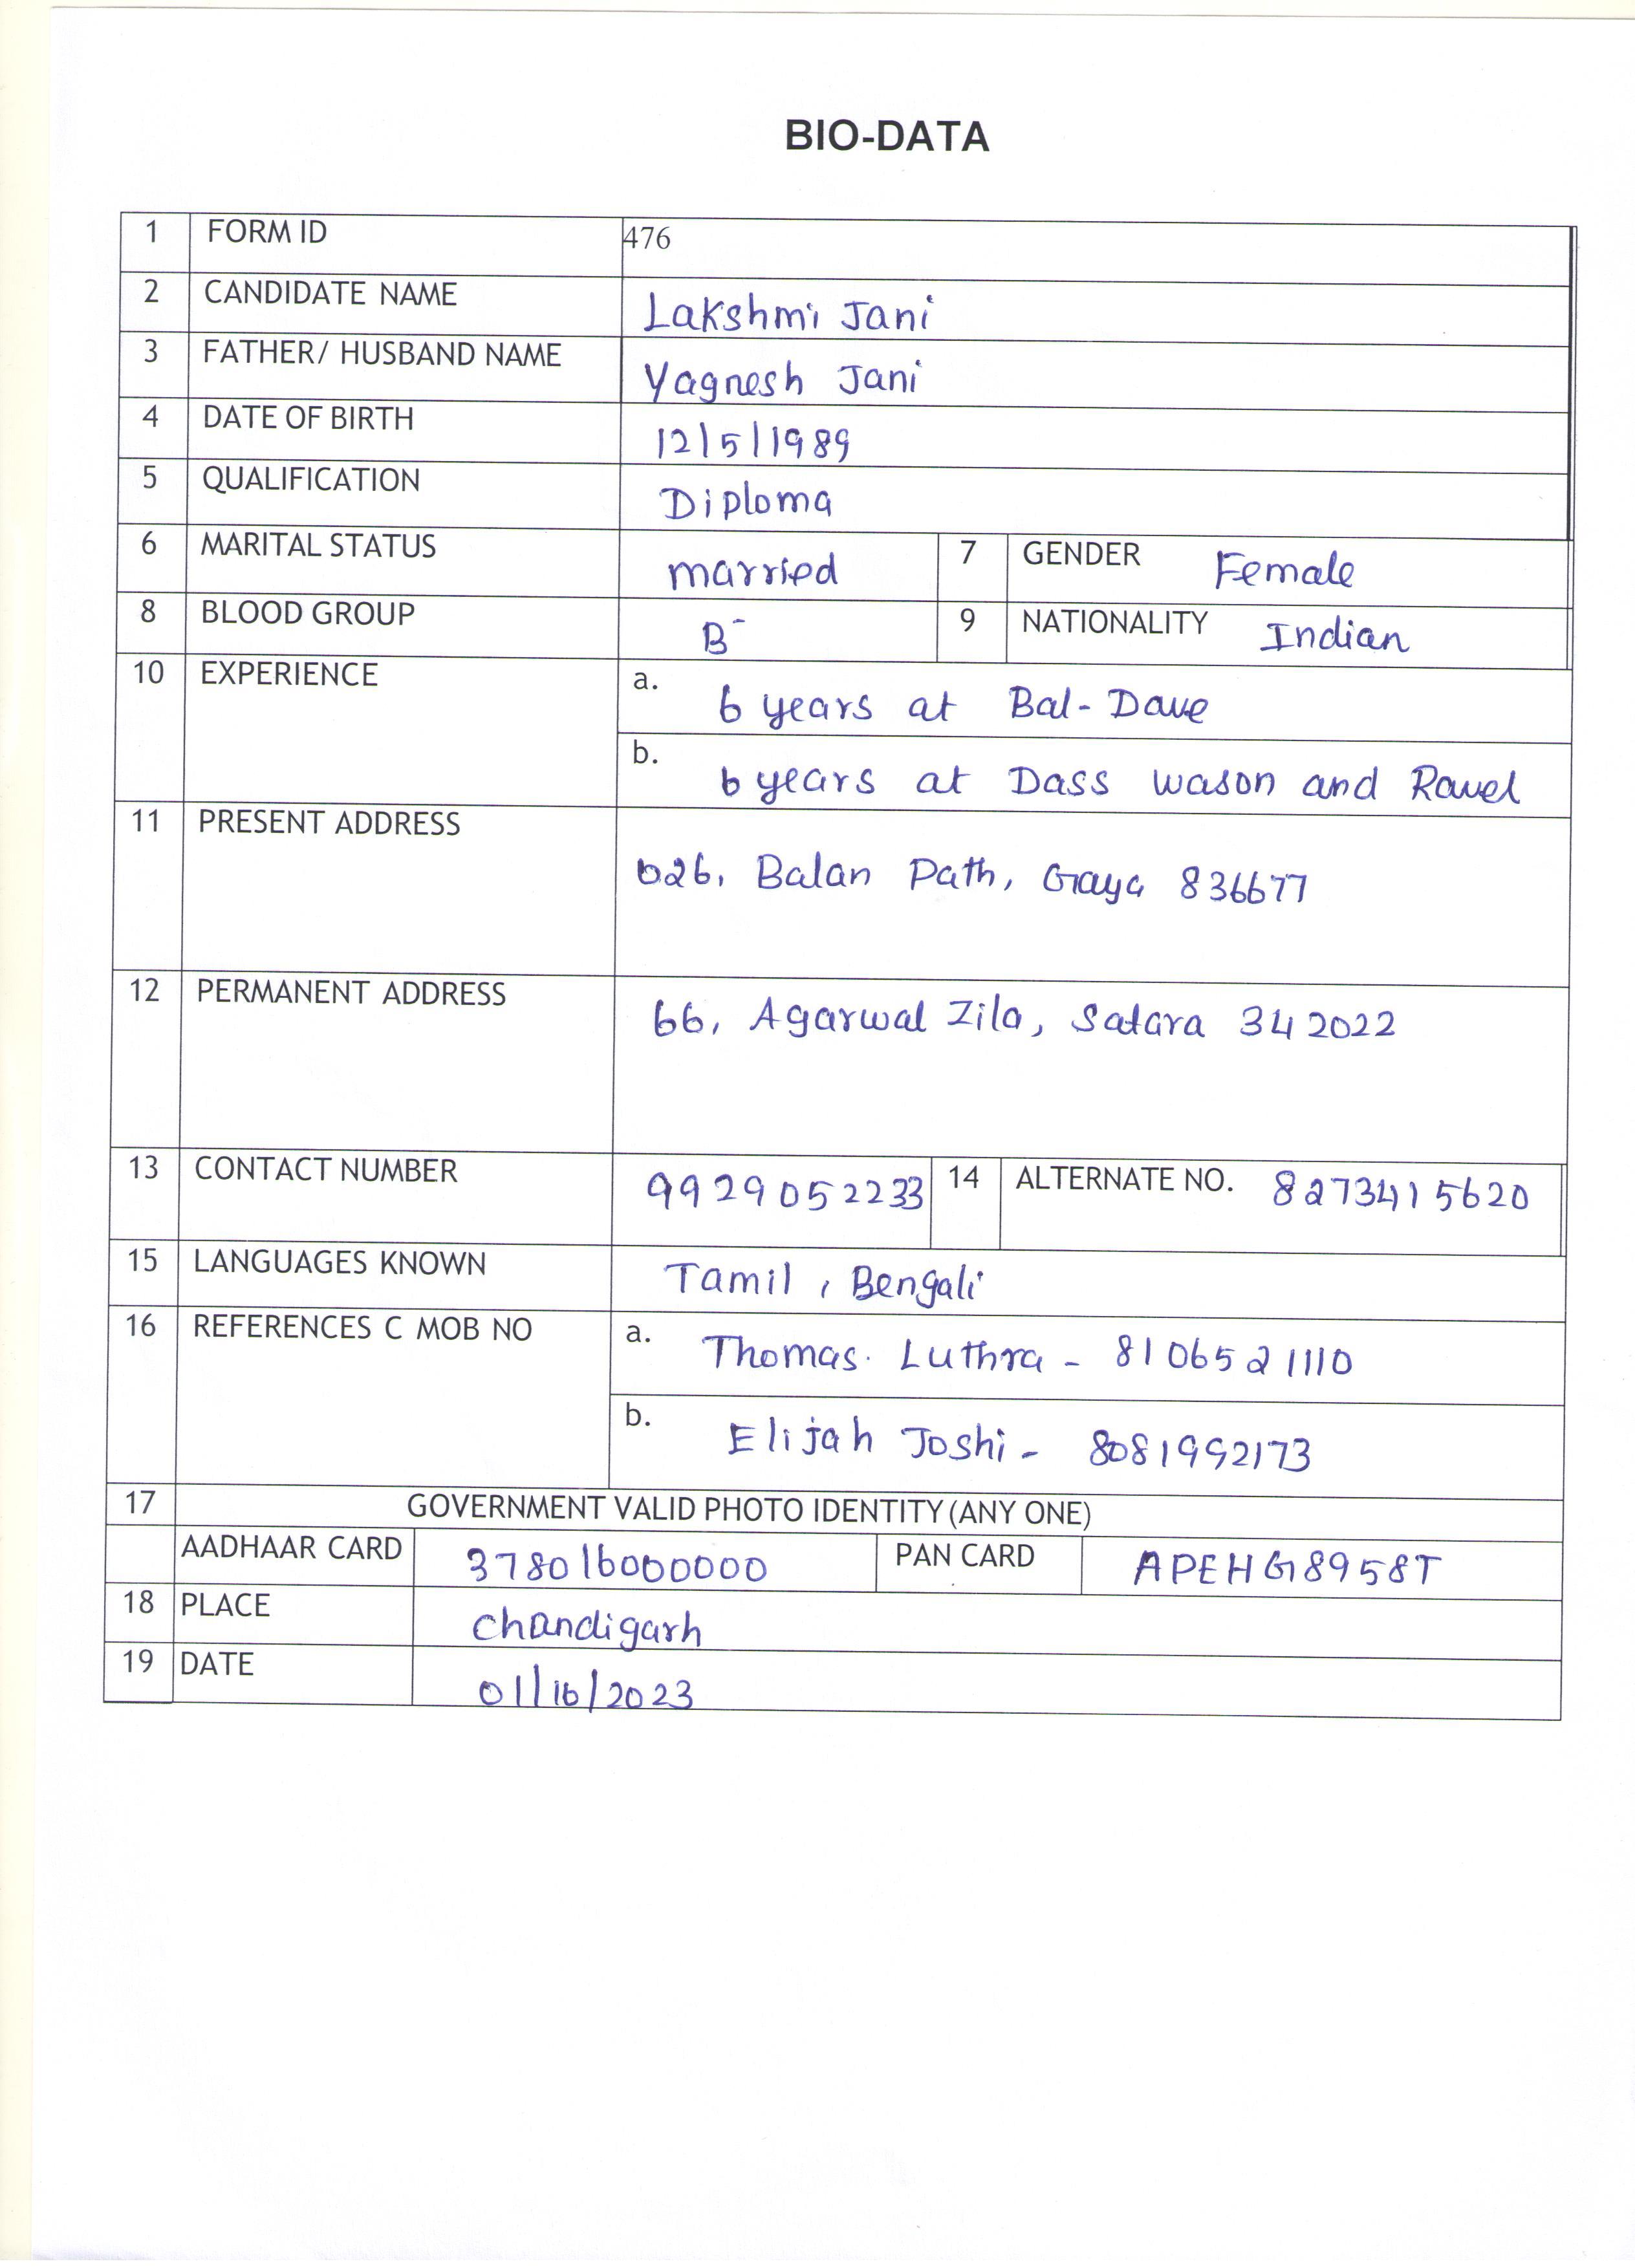 BIO-DATA
1 FORM ID 476
2 CANDIDATE NAME Lakshmi Jani
3 FATHER/ HUSBAND NAME Yagnesh Jani
4 DATE OF BIRTH 12/5/1989
5 QUALIFICATION Diploma
6 MARITAL STATUS married 7 GENDER Female
8 BLOOD GROUP B- 9 NATIONALITY Indian
10 EXPERIENCE a. 6 years at Bal-Dave
b. 6 years at Dass wason and Ravel
11 PRESENT ADDRESS 026, Balan Path, Gaya 836677
12 PERMANENT ADDRESS 66, Agarwal Zila, Satara 342022
13 CONTACT NUMBER 9929052233 14 ALTERNATE NO. 8273415620
15 LANGUAGES KNOWN Tamil, Bengali
16 REFERENCES C MOB NO a. Thomas. Luthra - 8106521110
b. Elijah Joshi - 8081992173
17 GOVERNMENT VALID PHOTO IDENTITY (ANY ONE)
AADHAAR CARD 378016000000 PAN CARD APEHG8958T
18 PLACE Chandigarh
19 DATE 01/16/2023